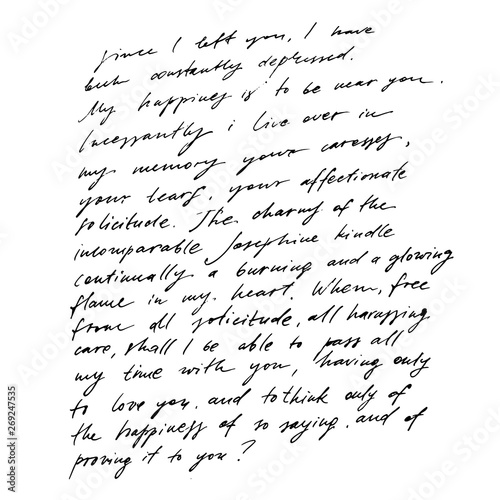 Since I left you, I have
been constantly depressed.
My happiness is to be near you.
Incessantly i live over in
my memory your caresses,
your tears, your affectionate
solicitude. The charms of the
incomparable Josephine kindle
continually a burning and a glowing
flame in my heart. When, free
from all solicitude, all harassing
care, shall I be able to pass all
my time with you, having only
to love you, and to think only of
the happiness of so saying, and of
proving it to you?
Adobe Stock | #269247535